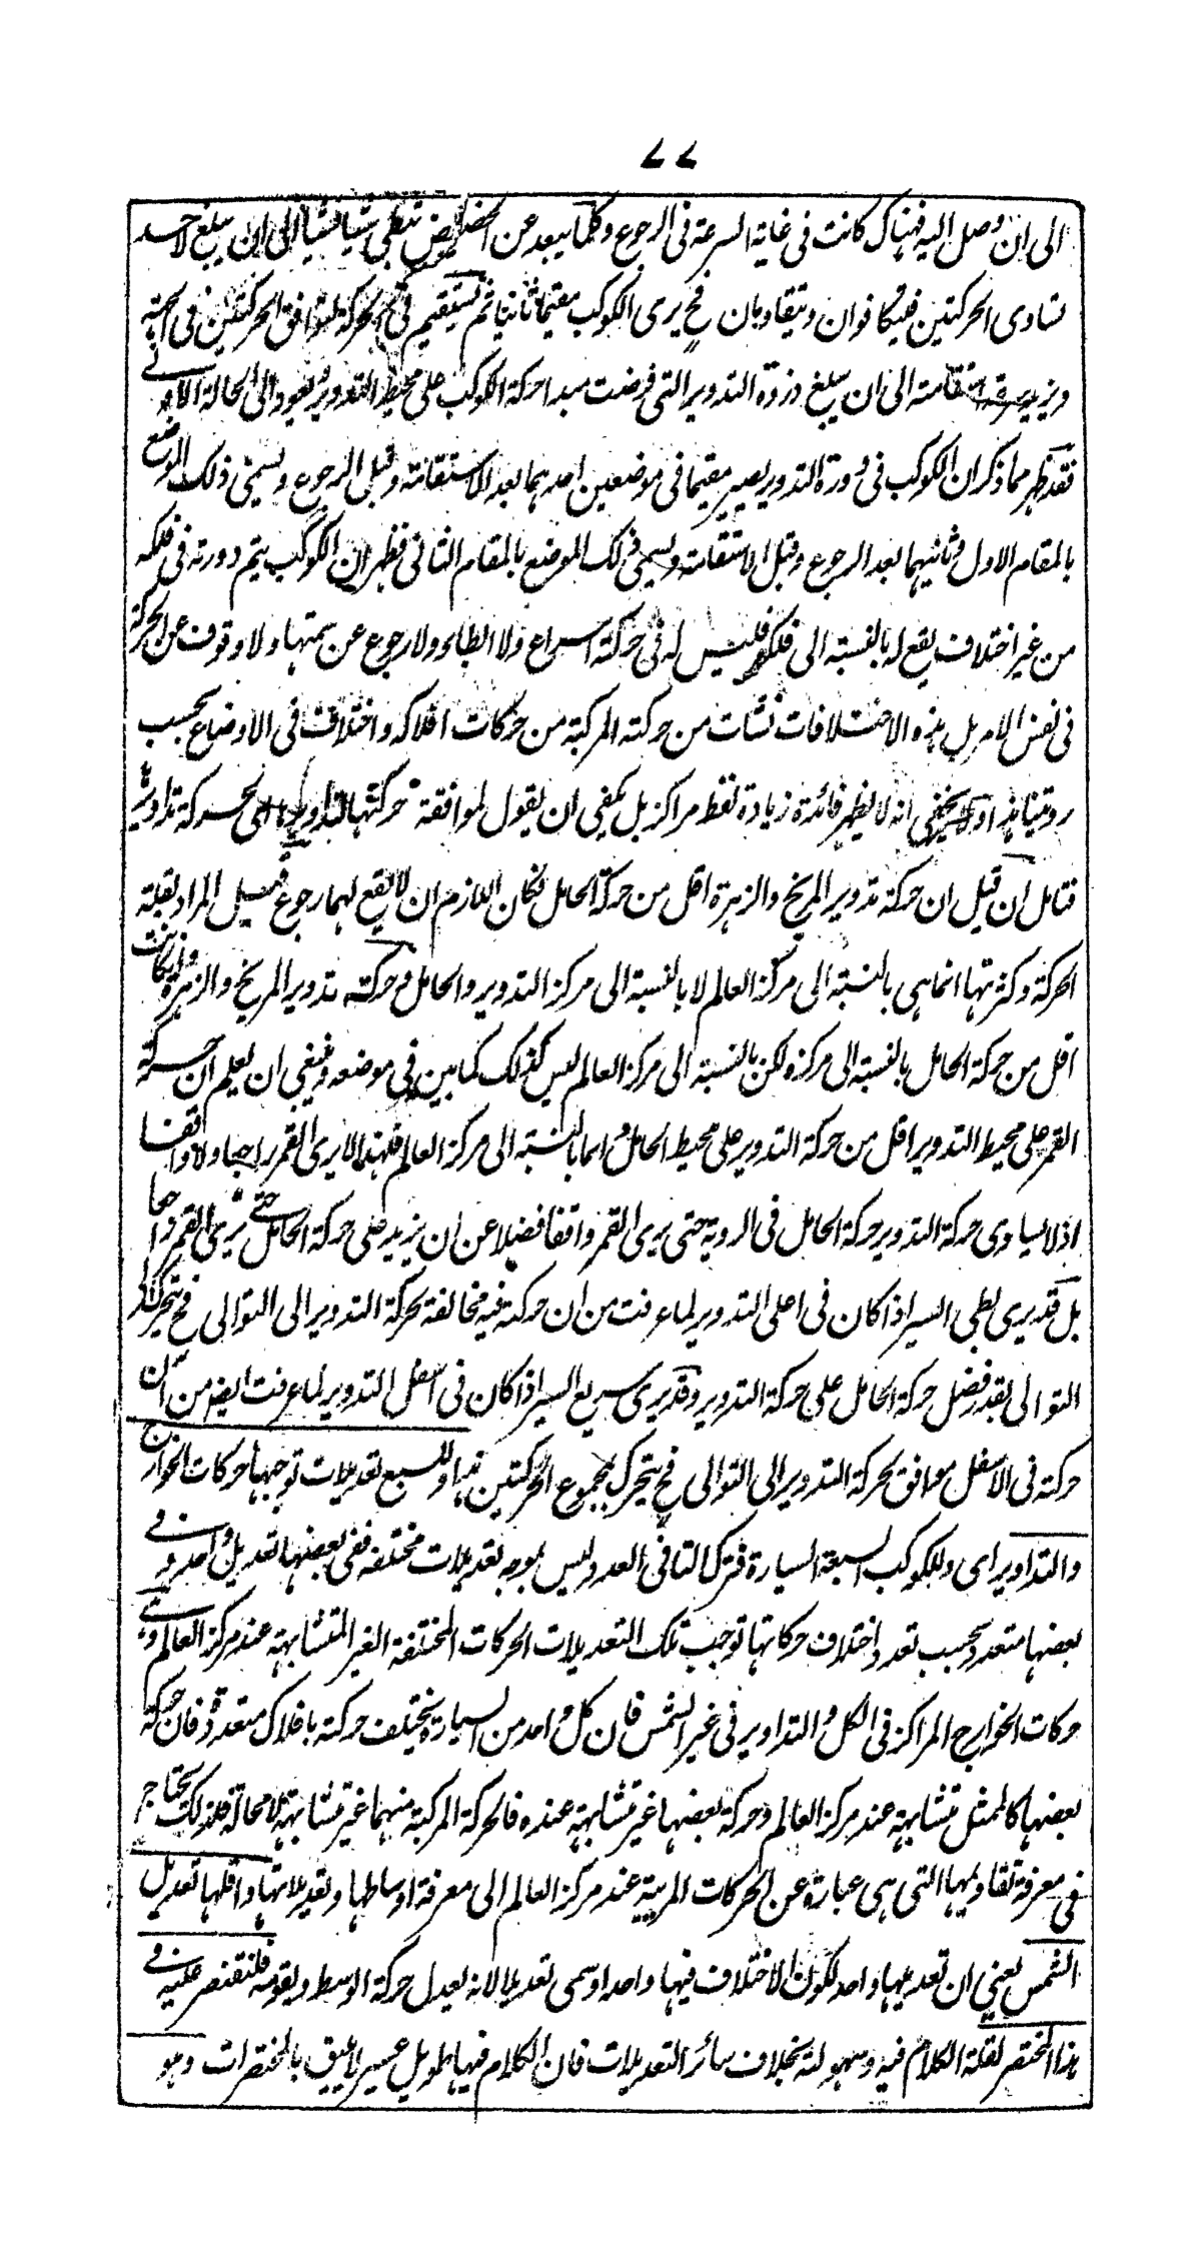 ۷۷
الى ان وصل اليه فهناك كانت فى غاية السرعة فى الرجوع وكلما يبعد عن الحضيض تبطى شيئا فشيئا الى ان يبلغ لاحد
تساوى الحركتين فيتكافوان ويتقاومان فح يرى الكوكب مقيما ثانيا ثم يستقيم فى الحركة لتوافق الحركتين فى الجهة
ويزيد استقامته الى ان يبلغ ذروة التدوير التى فرضت مبدا حركة الكوكب على محيط التدوير فيعود الى الحالة الاولى
فقد ظهر مما ذكر ان الكوكب فى دورة التدوير يصير مقيما فى موضعين احدهما بعد الاستقامة وقبل الرجوع ويسمى ذلك الموضع
بالمقام الاول وثانيهما بعد الرجوع وقبل الاستقامة ويسمى ذلك الموضع بالمقام الثانى فظهر ان الكوكب يتم دورته فى فلكه
من غير اختلاف يقع له بالنسبة الى فلكه فليس له فى حركته اسراع ولا ابطاء ولا رجوع عن سمتها ولا وقوف عن الحركة
فى نفس الامر بل هذه الاختلافات نشات من حركته المركبة من حركات افلاكه واختلاف فى الاوضاع بحسب
رويتنا هذا ولا يخفى انه لا يظهر فائدة زيادة لفظ مراكز بل يكفى ان يقول لموافقة حركتها لحركة تداويرها
فتامل ان قيل ان حركة تدوير المريخ والزهرة اقل من حركة الحامل فكان اللازم ان لا يقع لهما رجوع قيل المراد بقلة
الحركة وكثرتها انما هى بالنسبة الى مركز العالم لا بالنسبة الى مركز التدوير والحامل وحركة تدوير المريخ والزهرة وان كانت
اقل من حركة الحامل بالنسبة الى مركزه لكن بالنسبة الى مركز العالم ليس كذلك كما بين فى موضعه وينبغى ان يعلم ان حركة
القمر على محيط التدوير اقل من حركة التدوير على محيط الحامل دائما بالنسبة الى مركز العالم فلهذا لا يرى القمر راجعا ولا واقفا
اذ لا يساوى حركة التدوير حركة الحامل فى الروية حتى يرى القمر واقفا فضلا عن ان يزيد على حركة الحامل حتى يرى القمر راجعا
بل قد يرى بطى السير اذا كان فى اعلى التدوير لما عرفت من ان حركته فيه مخالفة لحركة التدوير الى التوالى فح يتحرك الى
التوالى بقدر فضل حركة الحامل على حركة التدوير وقد يرى سريع السير اذا كان فى اسفل التدوير لما عرفت ايضا من ان
حركته فى الاسفل موافق لحركة التدوير الى التوالى فح يتحرك بمجموع الحركتين وللسبع تعديلات توجبها حركات الخوارج
والتداوير اى وللكواكب السبعة السيارة فترك التا فى العدد وليس بوجه تعديلات مختلفه ففى بعضها تعديل واحد وفى
بعضها متعدد بحسب تعدد واختلاف حركاتها توجب تلك التعديلات الحركات المختلفة الغير المتشابهة عند مركز العالم وهى
حركات الخوارج المراكز فى الكل والتداوير فى غير الشمس فان كل واحد من السيارة يختلف حركته بافلاك متعددة فان حركة
بعضها كالممثل متشابهة عند مركز العالم وحركة بعضها غير متشابهة عنده فالحركة المركبة منهما غير متشابهة لا محالة فلذلك يحتاج
فى معرفة تقاويمها التى هى عبارة عن الحركات المرئية عند مركز العالم الى معرفة اوساطها وتعديلاتها واقلها تعديل
الشمس يعنى ان تعديلها واحد لكون الاختلاف فيها واحدا وسمى تعديلا لانه يعدل حركة الوسط ويقومه فلنقتصر عليه فى
هذا المختصر لقلة الكلام فيه وسهولته بخلاف سائر التعديلات فان الكلام فيها طويل عسير لا يليق بالمختصرات وهو